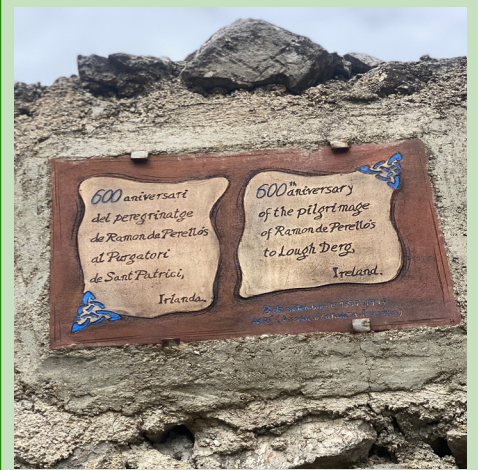 600 aniversari
del peregrinatge
de Ramon de Perellós
al Purgatori
de Sant Patrici,
Irlanda.
600th aniversary
of the pilgrimage
of Ramon de Perellós
to Lough Derg,
Ireland.